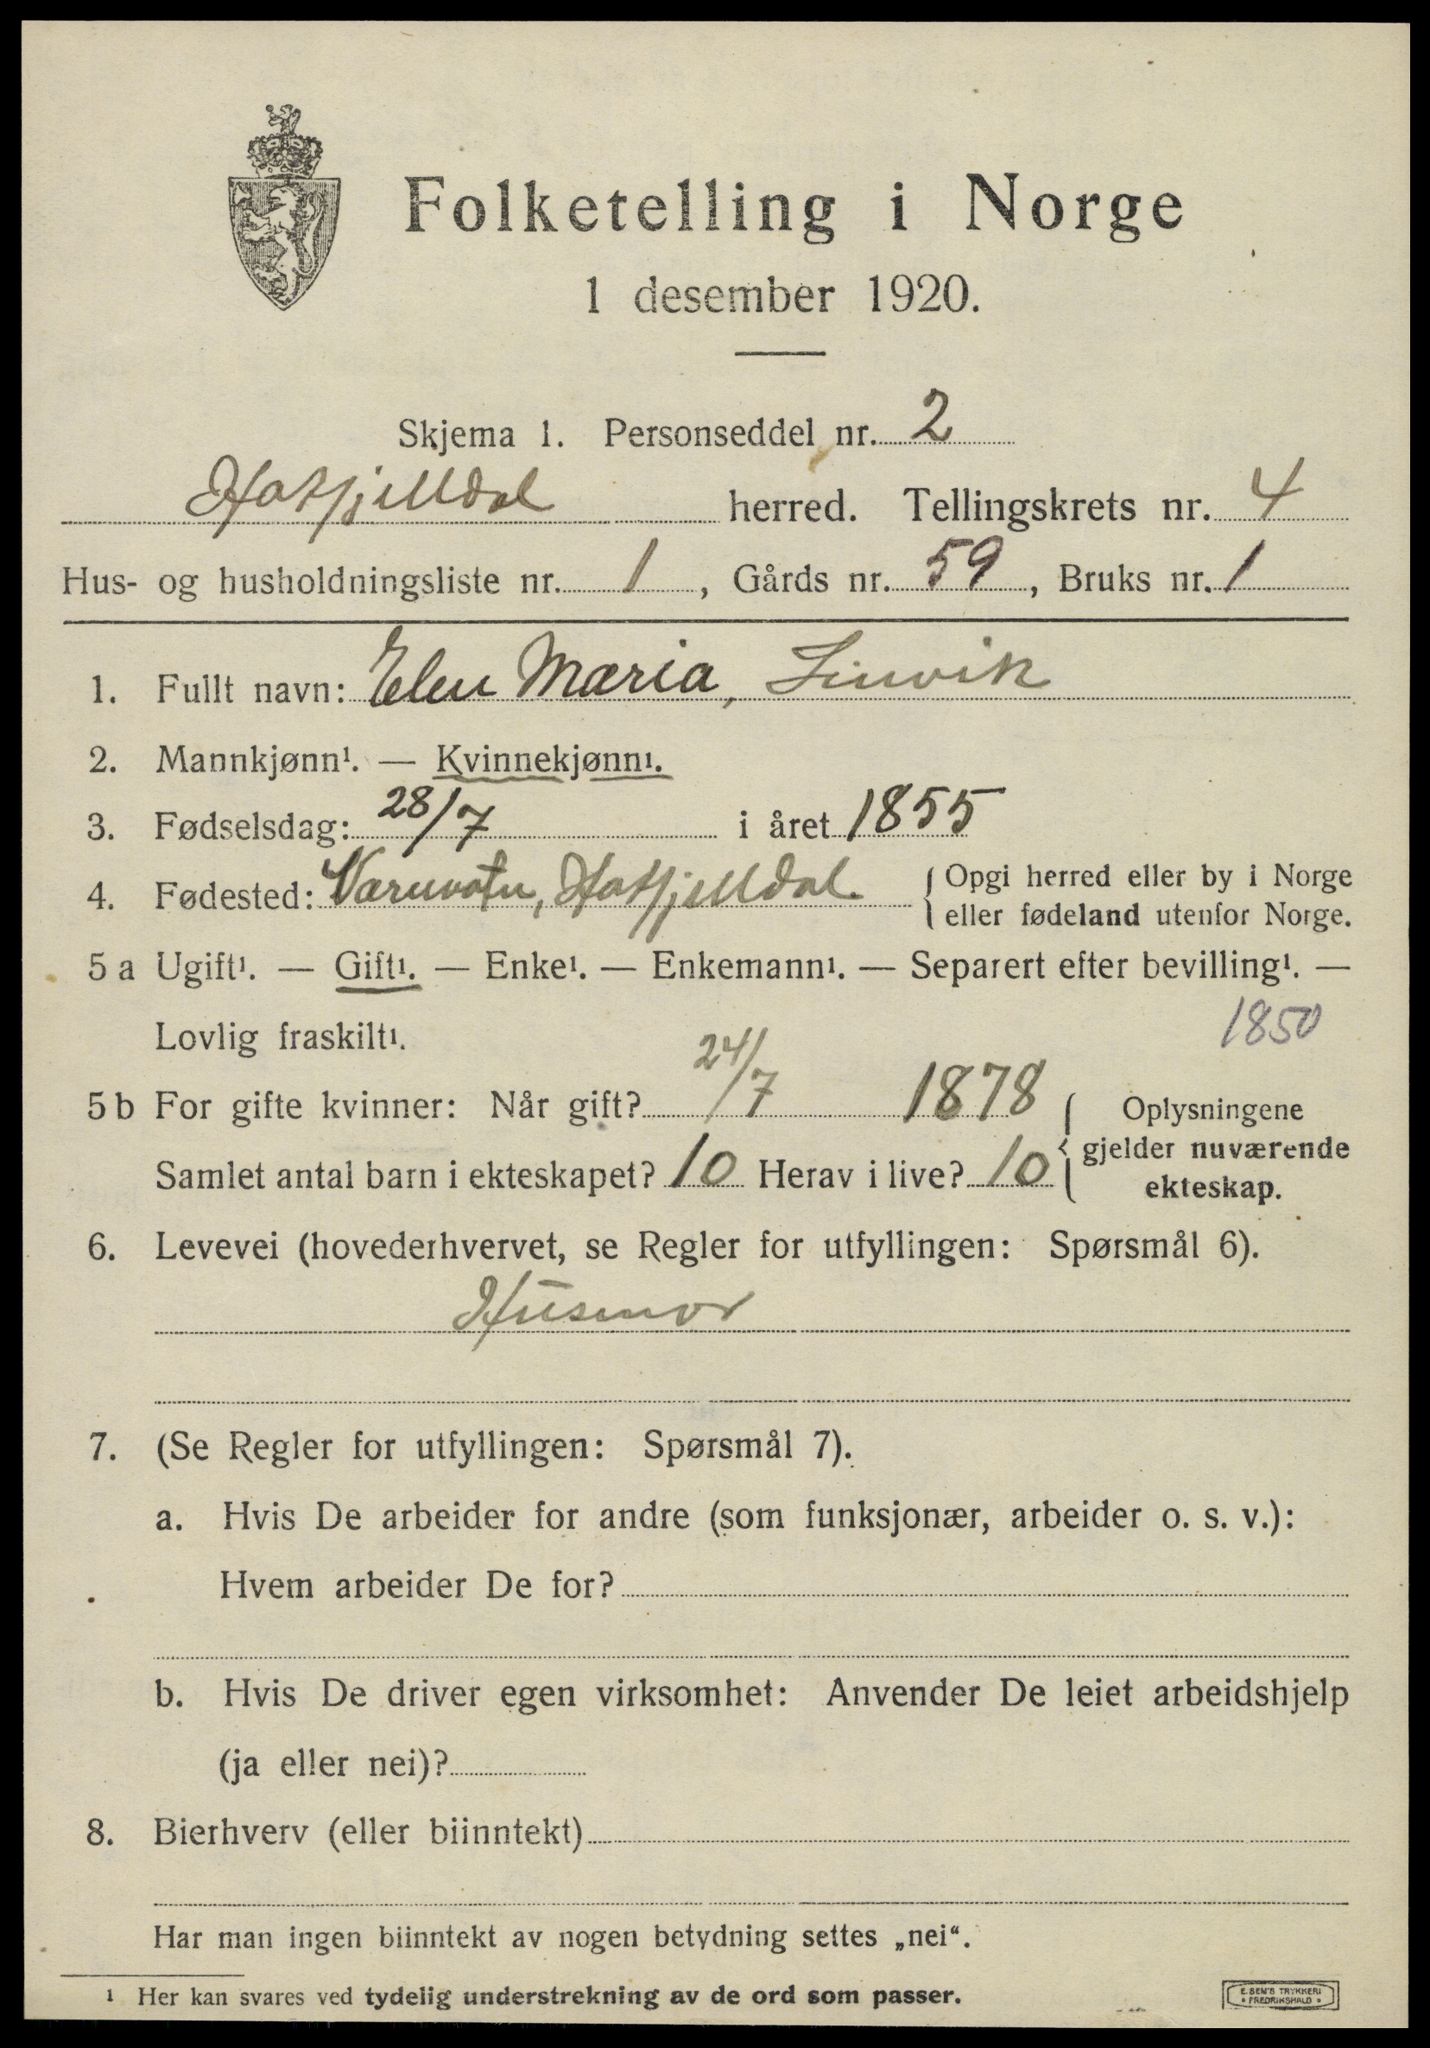 Folketelling i Norge
1 desember 1920.
Skjema 1. Personseddel nr. 2
Hatfjelldal herred. Tellingskrets nr. 4
Hus- og husholdningsliste nr. 1, Gårds nr. 59, Bruks nr. 1
1. Fullt navn: Elen Maria,
2. Mannkjønn¹. — Kvinnekjønn¹.
3. Fødselsdag: 28/7 i året 1855
4. Fødested: Hatfjelldal { Opgi herred eller by i Norge
eller fødeland utenfor Norge.
5 a Ugift¹. — Gift¹. — Enke¹. — Enkemann¹. — Separert efter bevilling¹. —
Lovlig fraskilt¹. 1850
5 b For gifte kvinner: Når gift? 24/7 1878 { Oplysningene
gjelder nuværende
Samlet antal barn i ekteskapet? 10 Herav i live? 10 ekteskap.
6. Levevei (hovederhvervet, se Regler for utfyllingen: Spørsmål 6).
Husmor
7. (Se Regler for utfyllingen: Spørsmål 7).
a. Hvis De arbeider for andre (som funksjonær, arbeider o. s. v.):
Hvem arbeider De for?
b. Hvis De driver egen virksomhet: Anvender De leiet arbeidshjelp
(ja eller nei)?
8. Bierhverv (eller biinntekt)
Har man ingen biinntekt av nogen betydning settes „nei“.
¹ Her kan svares ved tydelig understrekning av de ord som passer.
E. SEM'S TRYKKERI
• FREDRIKSHALD •